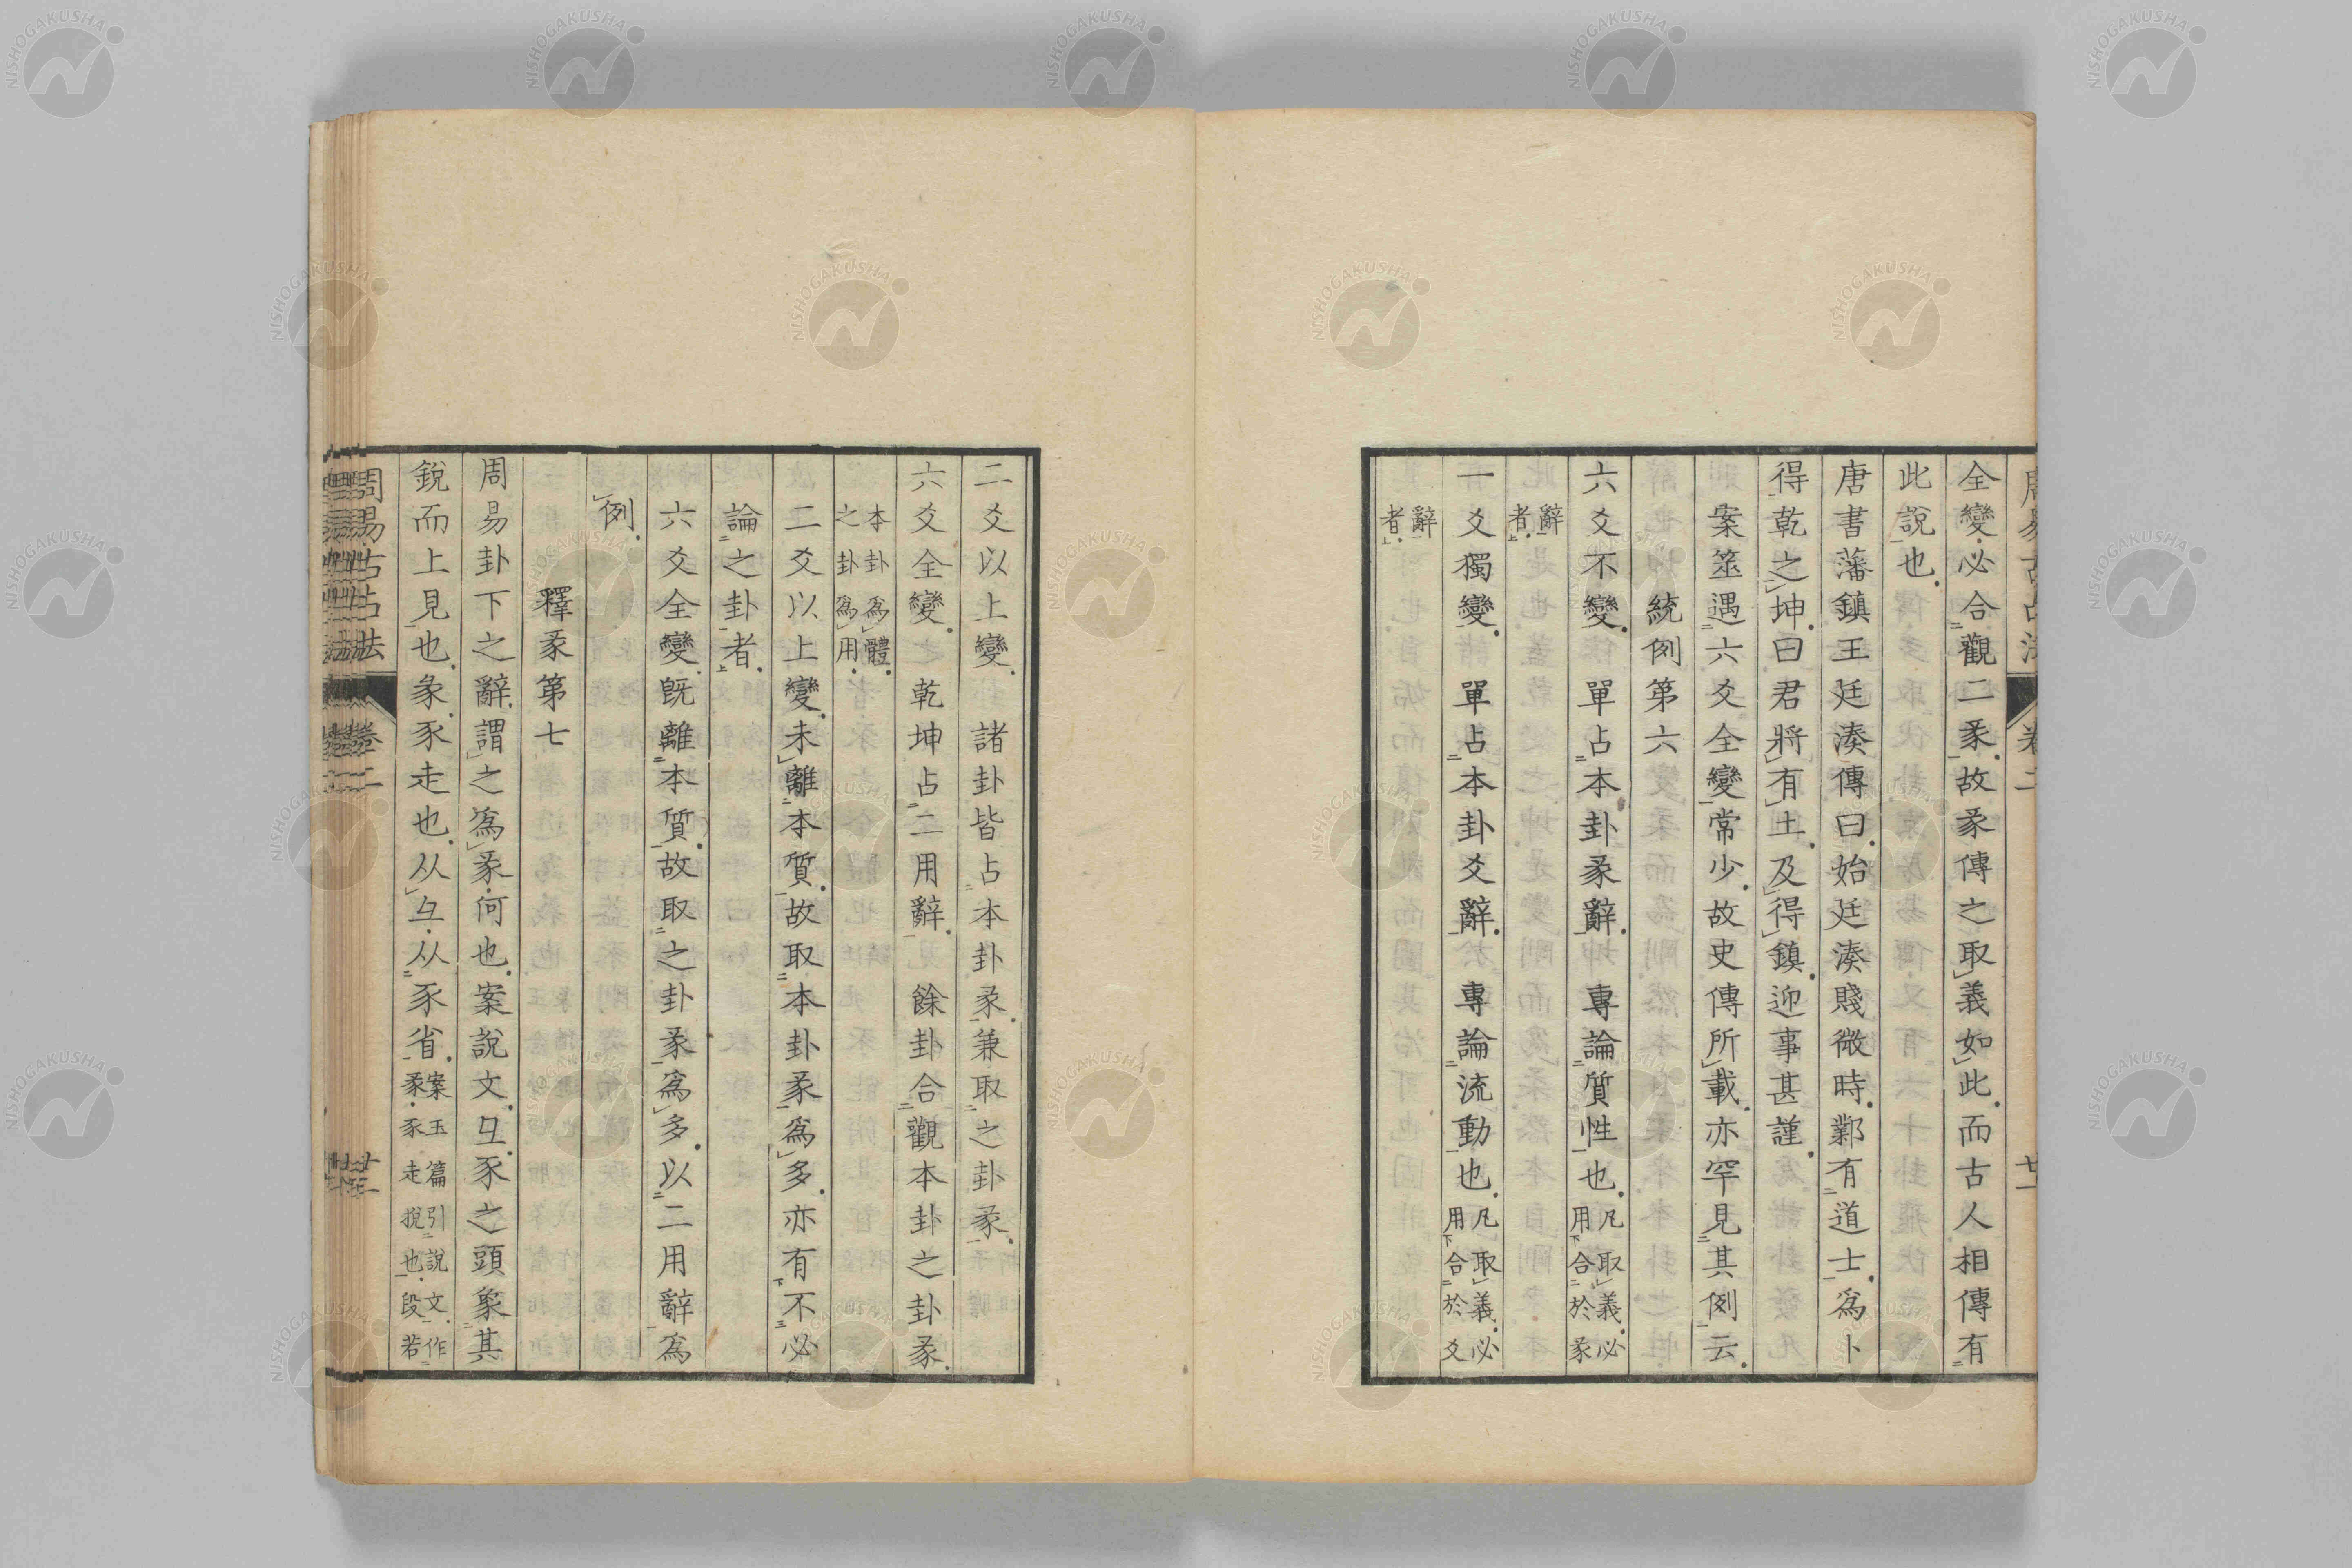 全變必合觀二彖故彖傳之取義如此而古人相傳有
此說也
唐書藩鎮王廷湊傳曰始廷湊賤微時鄴有道士爲卜
得乾之坤曰君將有土及得鎮迎事甚謹
案筮遇六爻全變常少故史傳所載亦罕見其例云
統例第六
六爻不變 單占本卦彖辭 專論質性也凡取義必用合於彖
辭者
一爻獨變 單占本卦爻辭 專論流動也凡取義必用合於爻
辭者
二爻以上變 諸卦皆占本卦彖兼取之卦彖
六爻全變 乾坤占二用辭 餘卦合觀本卦之卦彖
本卦爲體之卦爲用
二爻以上變未離本質故取本卦彖爲多亦有不必
論之卦者
六爻全變既離本質故取之卦彖爲多以二用辭爲
例
釋彖第七
周易卦下之辭謂之爲彖何也案說文彑豕之頭象其
銳而上見也彖豕走也从彑从豕省案玉篇引說文作彖豕走挩也段若
周易古占法 卷二
NISHOGAKUSHA